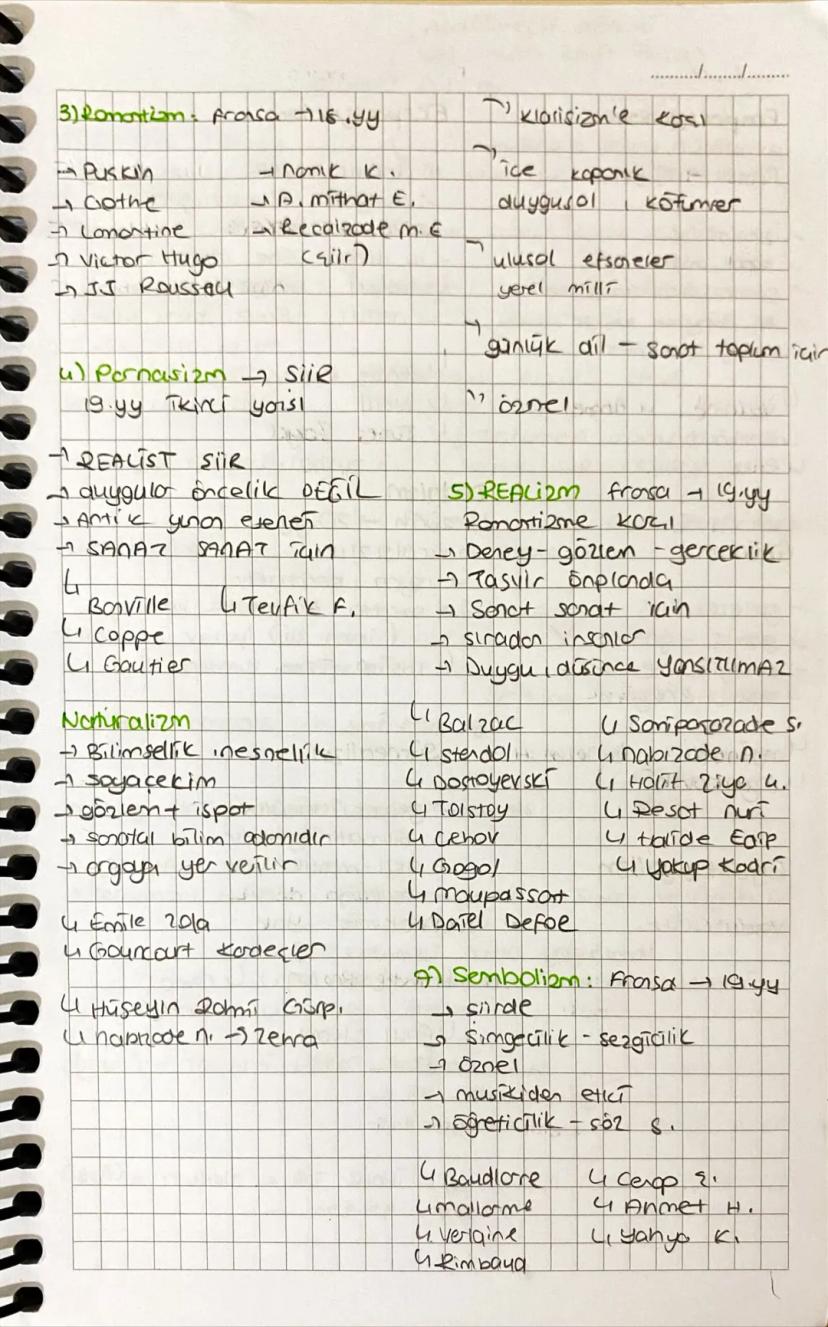 ........../......../.........
3) Romantizm: Fransa → 18.yy
→ Puşkin → Namık K.
→ Göthe → A. Mithat E.
→ Lamartine → Recaizade M. E
→ Victor Hugo (şiir)
→ JJ Rousseau
→ klasisizm'e karşı
→ içe kapanık
duygusal, kötümser
→ ulusal efsaneler
yerel milli
→ günlük dil - sanat toplum için
→ öznel
4) Parnasizm → ŞiiR
19.yy ikinci yarısı
→ REALİST ŞiiR
→ duygular öncelik DEĞİL
→ Antik yunan
→ SANAT SANAT için
↳ Banville ↳ Tevfik F.
↳ Coppe
↳ Gautier
5) REALizm Fransa → 19.yy
Romantizme karşı
→ Deney-gözlem-gerçeklik
→ Tasvir önplanda
→ Sanat sanat için
→ sıradan insanlar
→ Duygu, düşünce YANSITILMAZ
↳ Balzac ↳ Samipaşazade S.
↳ Stendal ↳ Nabizade N.
↳ Dostoyevski ↳ Halit Ziya U.
↳ Tolstoy ↳ Reşat nuri
↳ Çehov ↳ Halide Edip
↳ Gogol ↳ Yakup Kadri
↳ Maupassant
↳ Daiel Defoe
Naturalizm
→ Bilimsellik, nesnellik
→ soyaçekim
→ gözlem + ispat
→ sanatçı bilim adamıdır
→ argoya yer verilir
↳ Emile Zola
↳ Gouncourt kardeşler
↳ Hüseyin Rahmi Gürp.
↳ nabizade n. → Zehra
7) Sembolizm: Fransa → 19.yy
→ şiirde
→ Simgecilik - sezgicilik
→ öznel
→ musikiden etki
→ öğreticilik - söz s.
↳ Baudlarre ↳ Cenap Ş.
↳ mallarme ↳ Ahmet H.
↳ Verlaine ↳ Yahya K.
↳ Rimbaud